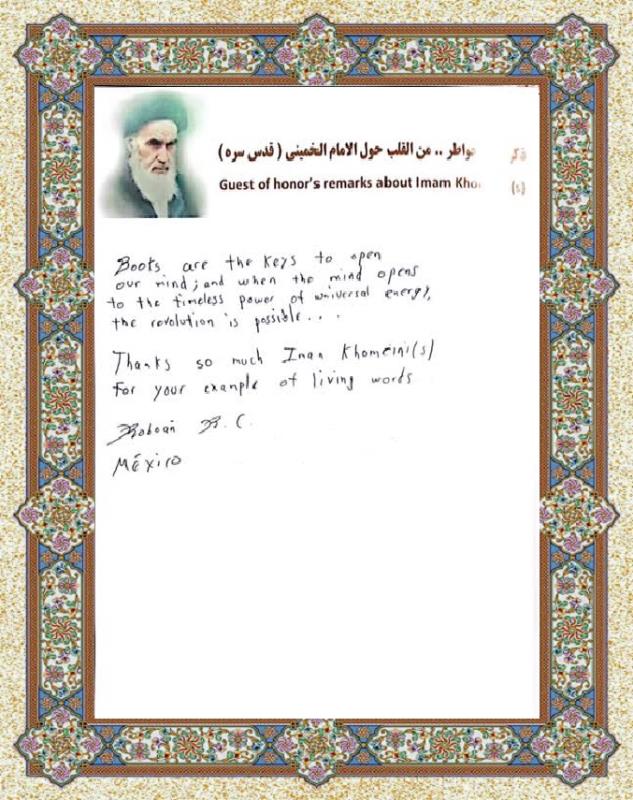 ذكر
خواطر .. من القلب حول الامام الخميني ( قدس سره )
Guest of honor's remarks about Imam Kho
(s)
Books are the keys to open
our mind; and when the mind opens
to the timeless power of universal energy,
the revolution is possible. . .
Thanks so much Iman Khomeini(s)
For your example of living words
R. C.
México